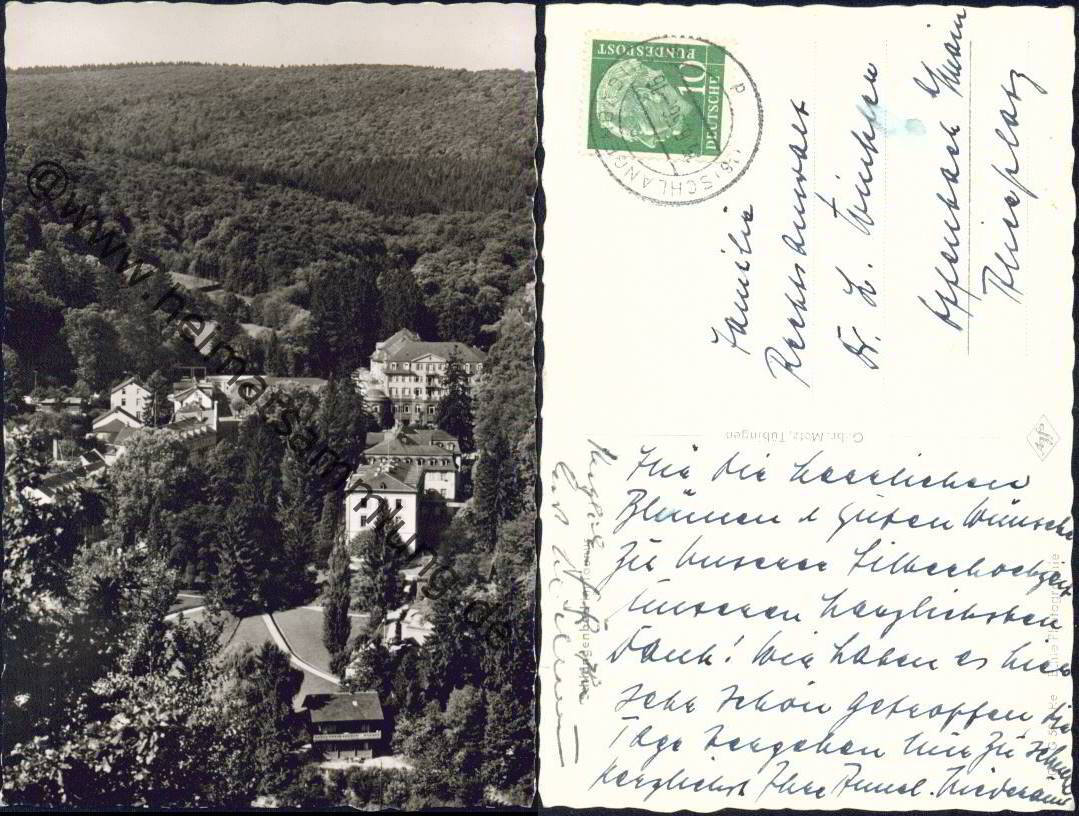 @www.heimatsammlung.de
DEUTSCHE
BUNDESPOST
10
(16) SCHLANGENBAD
Familie
Rechtsanwalt
Dr. L.
Offenbach / Main
Gbr. Metz, Tübingen
Für die herrlichen
Blumen & guten Wünsche
zu unserer Silberhochzeit
unseren herzlichsten
Dank! Wir haben es hier
sehr schön getroffen die
Tage vergehen nur zu schnell
Herzlichst Ihre
Echte Photographie